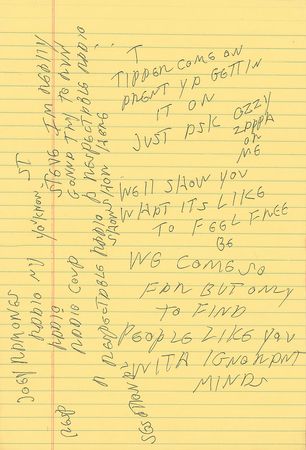 T
TIPPER COME ON
PRENT YA GETTIN
IT ON
JUST ASK OZZY
ZAPPA
OR
ME
WE'LL SHOW YOU
WHAT ITS LIKE
TO FEEL FREE
BE
WE COME SO
FAR BUT ONLY
TO FIND
PEOPLE LIKE YOU
WITH IGNORANT
MINDS
JOEY RAMONES
RADIO NY
YO'KNOW
ST
STEVE I'M REALLY
GONNA TRY TO RUN
A RESPECTABLE RADIO
SHOW HERE
RADIO
RADIO
A RESPECTABLE RADIO
SHOW HERE